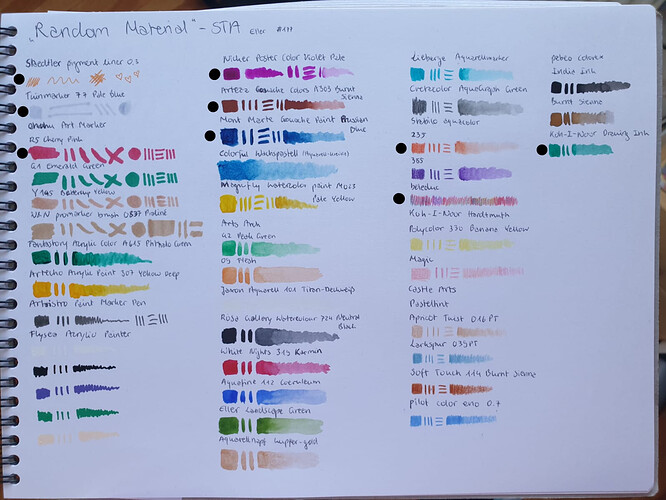 "Random Material" - STA Eller #177
Staedtler pigment liner 0.3
Twinmarker 77 Pale Blue
Ohuhu Art Marker
R5 Cherry Pink
G1 Emerald Green
Y145 Buttercup Yellow
W&N promarker brush O837 Praline
Fantastory Acrylic Color A615 Phthalo Green
Artecho Acrylic Paint 307 Yellow Deep
Artistro Paint Marker Pen
Flysea Acrylic Painter
Nicker Poster Color Violet Pale
Arteza Gouache Colors A303 Burnt
Sienna
Mont Marte Gouache Paint Prussian
Blue
Colorful Wachspastell
Magicfly Watercolor paint M023
Pale Yellow
Arts Arch
G2 Peak Green
O9 Flesh
Jaxon Aquarell 101 Titan-Deckweiß
Rosa Gallery Watercolour 724 Neutral
Black
White Nights 319 Karmin
Aquafine 112 Coeruleum
Eller Landscape Green
Aquarellnapf kupfer-gold
Lieberge Aquarellmarker
Cretacolor AquaGraph Green
Stabilo aquacolor
235
365
beleduc
Koh-I-Noor Hardtmuth
Polycolor 330 Banana Yellow
Magic
Castle Arts
Pasteltint
Apricot Twist 016PT
Larkspur 035PT
Soft Touch 114 Burnt Sienna
pilot color eno 0.7
pebeo colorex
India Ink
Burnt Sienna
Koh-I-Noor Drawing Ink